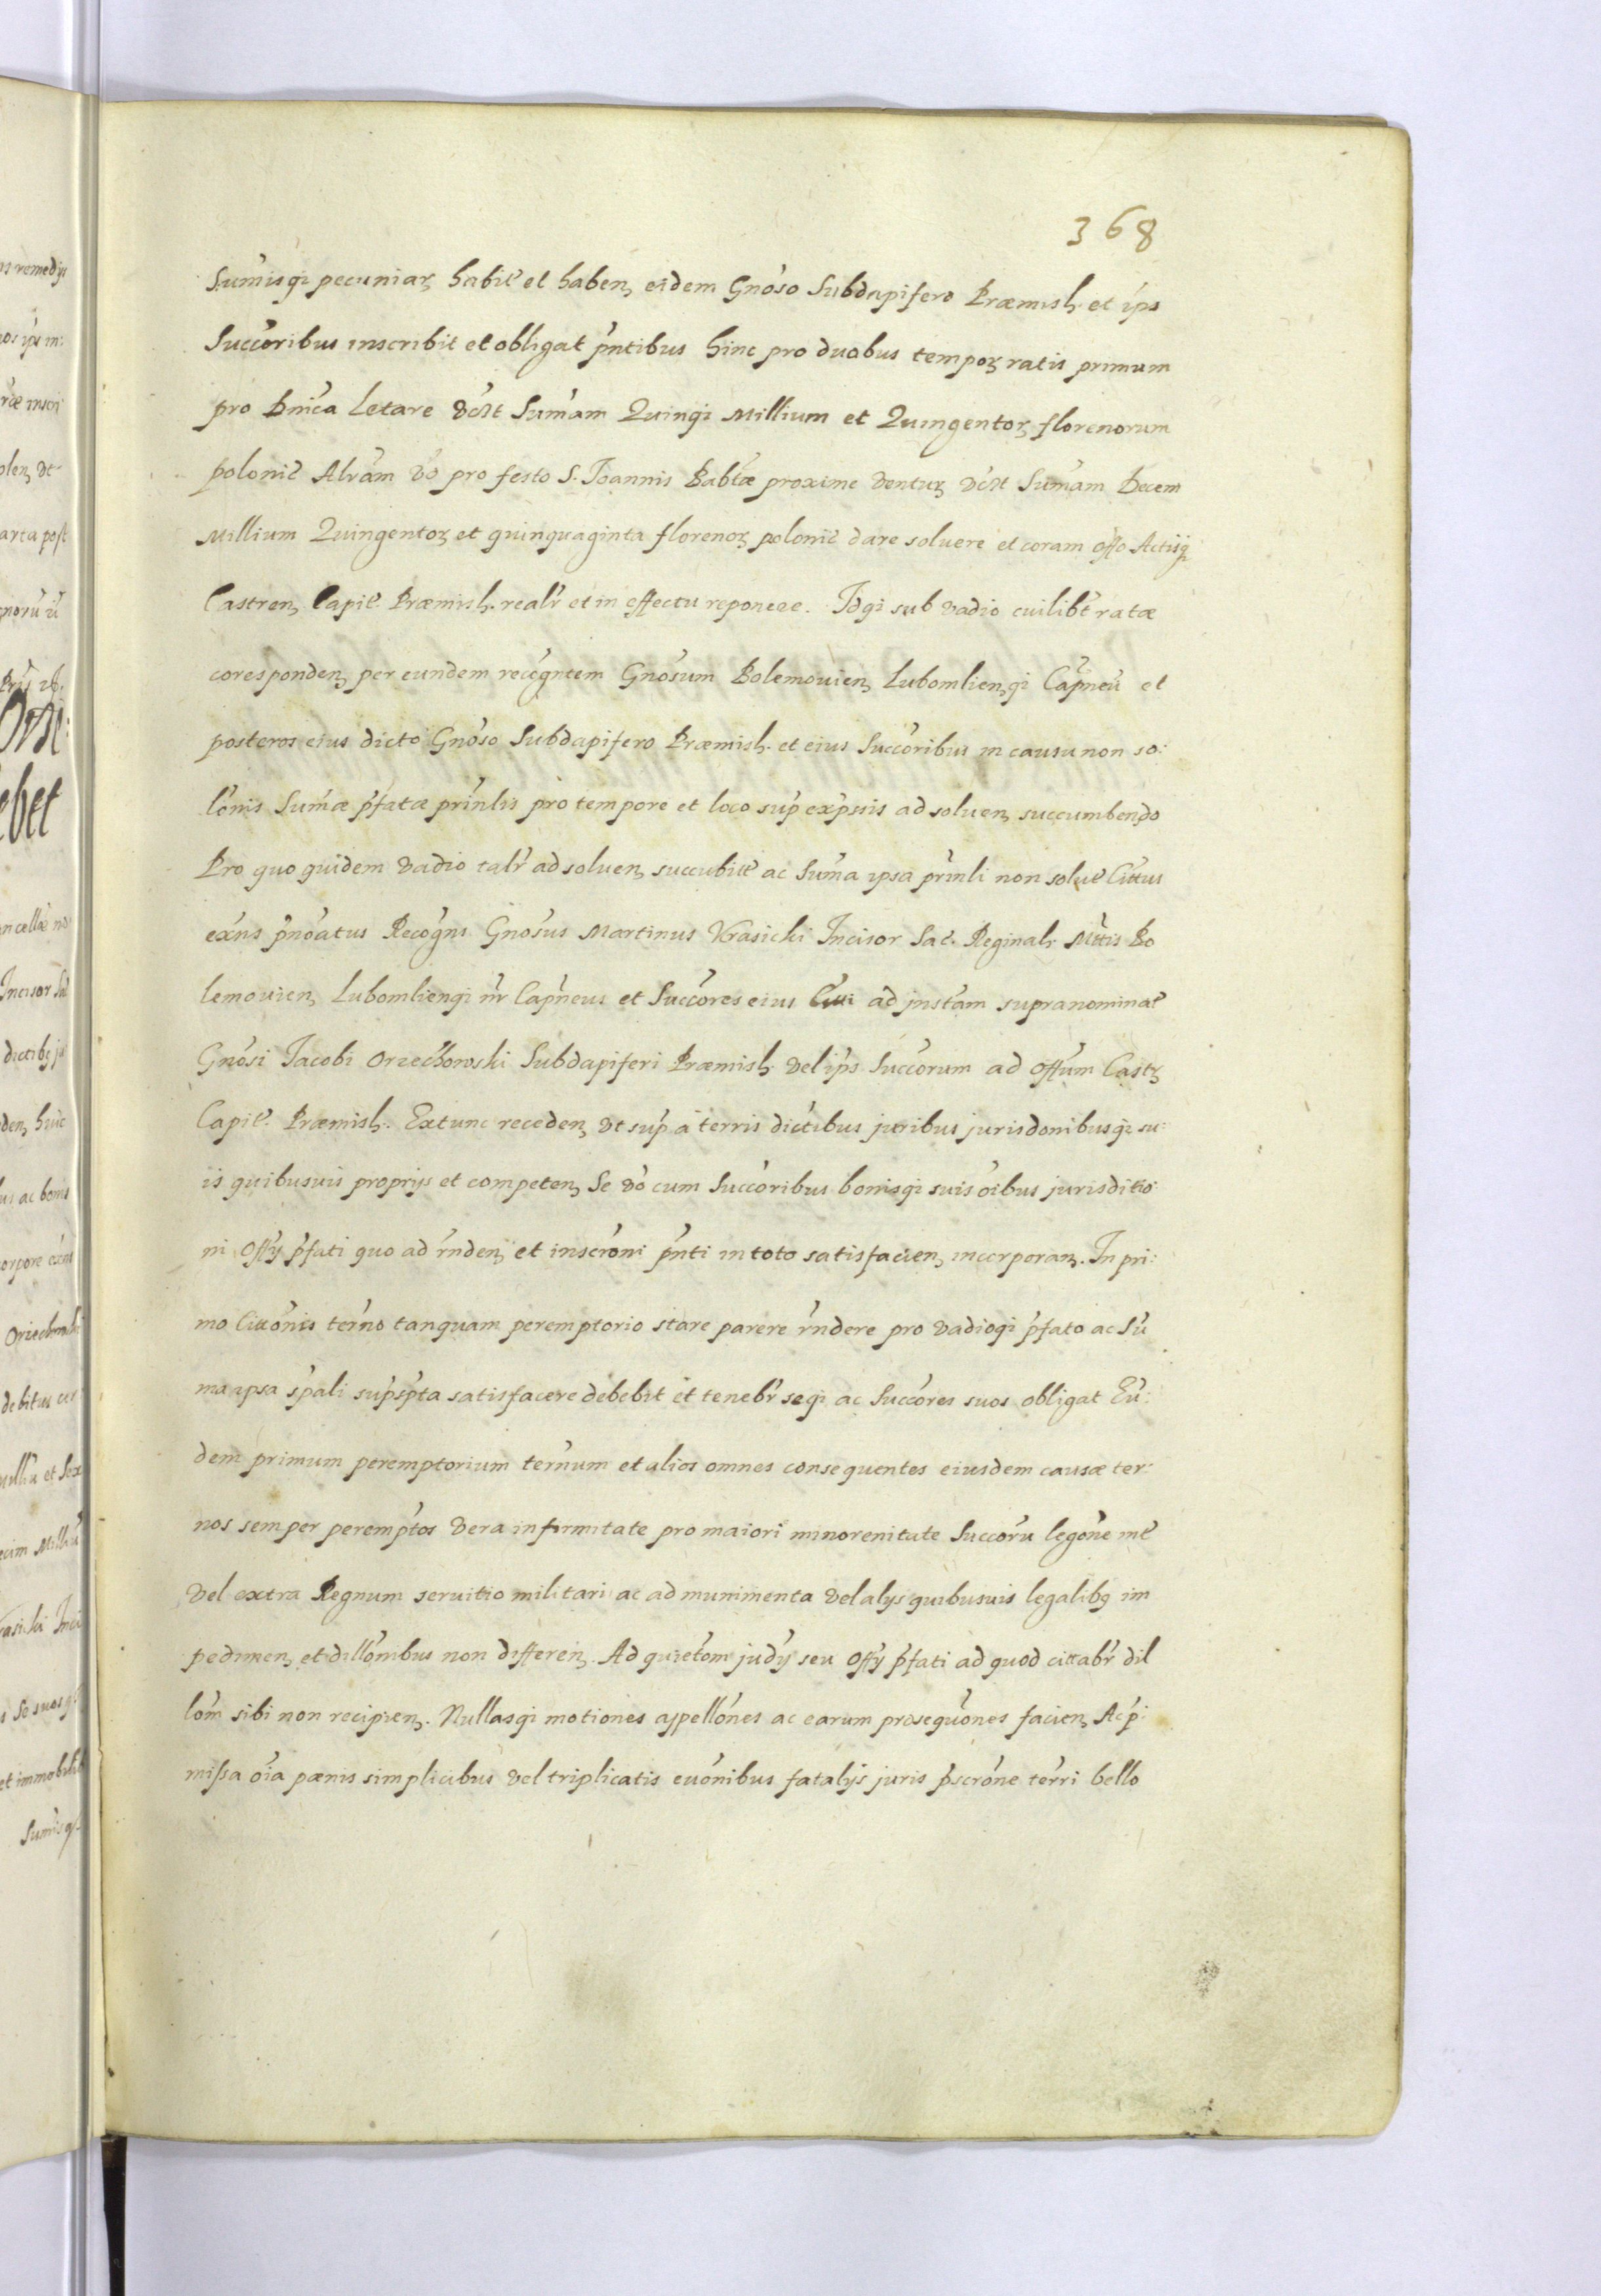 368
Sum̃isqȝ pecuniarꝫ habit̃ et haben̨ eidem Gnõso Subdapifero Præmisł. et ip̃s
Succõribus inscribit et obligat p̃ntibus hinc pro duobus temporꝫ ratis primum
pro Dñica Letare Vĩdt Sum̃am Quinqȝ Millium et Quingentorꝫ florenorum
polonic̃ Alrãm Võ pro festo S. Ioannis Babtæ proxime Venturꝫ Vĩdt Sum̃am Decem
Millium Quingentorꝫ et quinquaginta florenorꝫ polonic̃ dare soluere et coram Offo Actisqȝ
Castren̨ Capit̃. Præmisł. realr̃ et in effectu reponere. Idqȝ sub Vadio cuilibt̃ ratæ
coresponden̨ per eundem recõgntem Gnõsum Bolemouien̨ Lubomlien̨qȝ Cap̃neũ et
posteros eius dicto Gnõso Subdapifero Præmisł. et eius Succõribus in causu non so:
lõnis Sum̃æ p̃fatæ prin̄lis pro tempore et loco sup̃ exp̃ssis ad soluen̨ succumbendo
Pro quo quidem Vadio talr̃ ad soluen̨ succubit̃ ac Sum̃a ipsa prin̄li non solut̃ Cittus
exñs p̃noãtus Recog̃ns Gnõsus Martinus Krasicki Incisor Sac̃. Reginalꝫ Mttis Bo
lemouien̨ Lubomlienqȝ nr̃ Cap̃neus et Succõres eius Citti ad jnst̃am supranominat̃
Gnõsi Iacobi Orzechowski Subdapiferi Præmisł. Vel ip̃s Succorum ad Offum Castꝫ
Capit̃. Præmisł. Extunc receden̨ Vt sup̃ à terris dict̃ibus juribus jurisdõnibusqȝ su:
is quibusuis proprijs et competen̨ Se Võ cum Succõribus bonisqȝ suis oĩbus jurisditio
ni Offij p̃fati quo ad rñden̨ et inscrõni p̃nti in toto satisfacien̨ incorporan̨. In pri:
mo Cittõnis ter̃no tanquam peremptorio stare parere rñdere pro Vadioqȝ p̃fato ac Sũ
ma ipsa p̃ali sup̃sp̃ta satisfacere debebit et tenebr̃ seqȝ ac Succõres suos obligat Eũ:
dem primum peremptorium ter̃num et alios omnes consequentes eiusdem causæ ter:
nos semper perempt̃os Vera infirmitate pro maiori minorenitate Succorũ legõne mt̃
Vel extra Regnum seruitio militari ac ad munimenta Vel alijs quibusuis legalibꝫ im
pedimen̨ et dillõnibus non differen̨. Ad quietõm judij seu Offij p̃fati ad quod cittabr̃ dil
lõm sibi non recipien̨. Nullasqȝ motiones appellõnes ac earum prosequõnes facien̨ Ac p̃:
missa oĩa pænis simplicibus Vel triplicatis euõnibus fatalijs juris p̃scrõne ter̃ri bello